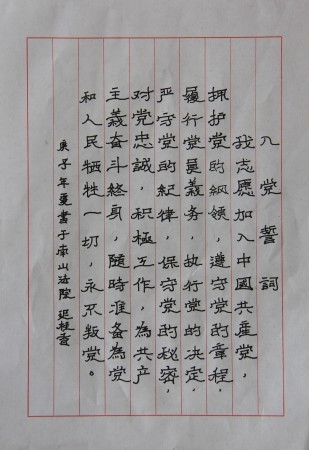 入党誓詞
我志愿加入中國共産党，
拥护党的綱領，遵守党的章程，
履行党員義务，执行党的决定，
严守党的紀律，保守党的秘密，
对党忠誠，积極工作，為共产
主義奋斗终身，隨時准备為党
和人民牺牲一切，永不叛党。
庚子年夏書于南山法院